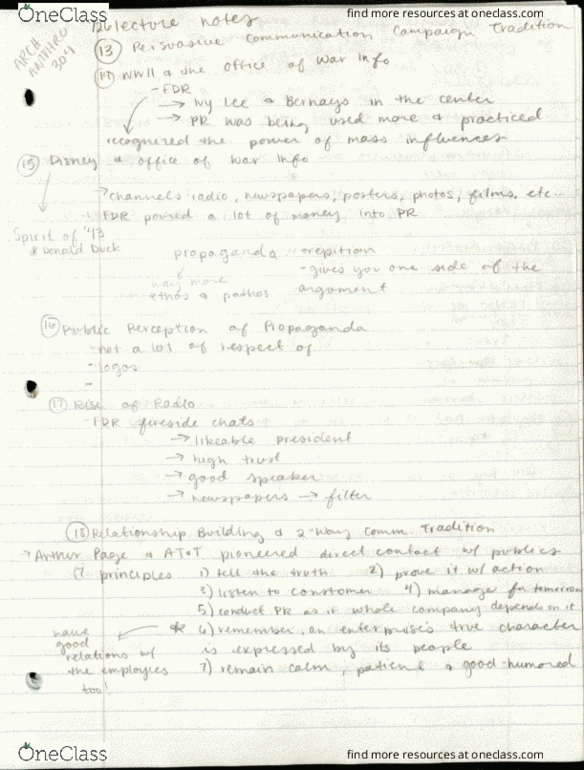 OneClass
find more resources at oneclass.com
lecture notes
ARCH
ANTHRO
304
(13) Persuasive Communication Campaign Tradition
WWII & the office of War Info
- FDR
→ Ivy Lee & Bernays in the center
→ PR was being used more & practiced
recognized the power of mass influences
(15) Disney & office of War Info
→ channels radio, newspapers, posters, photos, films, etc...
FDR poured a lot of money into PR
Spirit of '43
& Donald Duck
propaganda
- gives you one side of the
argument
way more
ethos & pathos
(16) Public Perception of Propaganda
- not a lot of respect of
- logos
-
(17) Rise of Radio
- FDR fireside chats
→ likeable president
→ high trust
→ good speaker
→ newspapers → filter
(18) Relationship Building & 2-Way Comm. Tradition
→ Arthur Page & AT&T pioneered direct contact w/ publics
7 principles 1) tell the truth 2) prove it w/ action
3) listen to 4) manage for tomorrow
5) conduct PR as if whole company depends on it
* 6) remember, an enterprise's true character
is expressed by its people
7) remain calm, patient & good-humored
have
good
relations w/
the employees
too!
OneClass
find more resources at oneclass.com